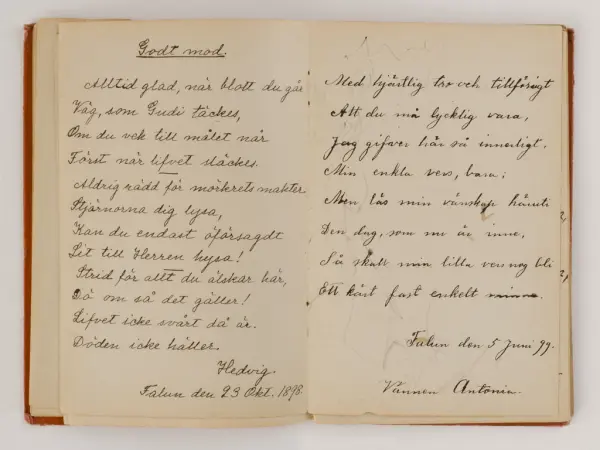 Godt mod.
Alltid glad, när blott du går
Väg, som Gudi täckes,
Om du vek till målet når
Först när lifvet släckes.
Aldrig rädd för mörkrets makter
Stjärnorna dig lysa,
Kan du endast oförsagdt
Lit till Herren hysa!
Strid för allt du älskar här,
Dö om så det gäller!
Lifvet icke svårt då är.
Döden icke häller.
Hedvig.
Falun den 23 Okt. 1898.
Med hjärtlig tro och tillförsigt
Att du må lycklig vara,
Jag gifver här så innerligt.
Min enkla vers, bara;
Men läs min vänskap häruti
Den dag, som nu är inne,
Så skall min lilla vers nog bli
Ett kärt fast enkelt minne.
Falun den 5 Juni 99.
Vännen Antonia.